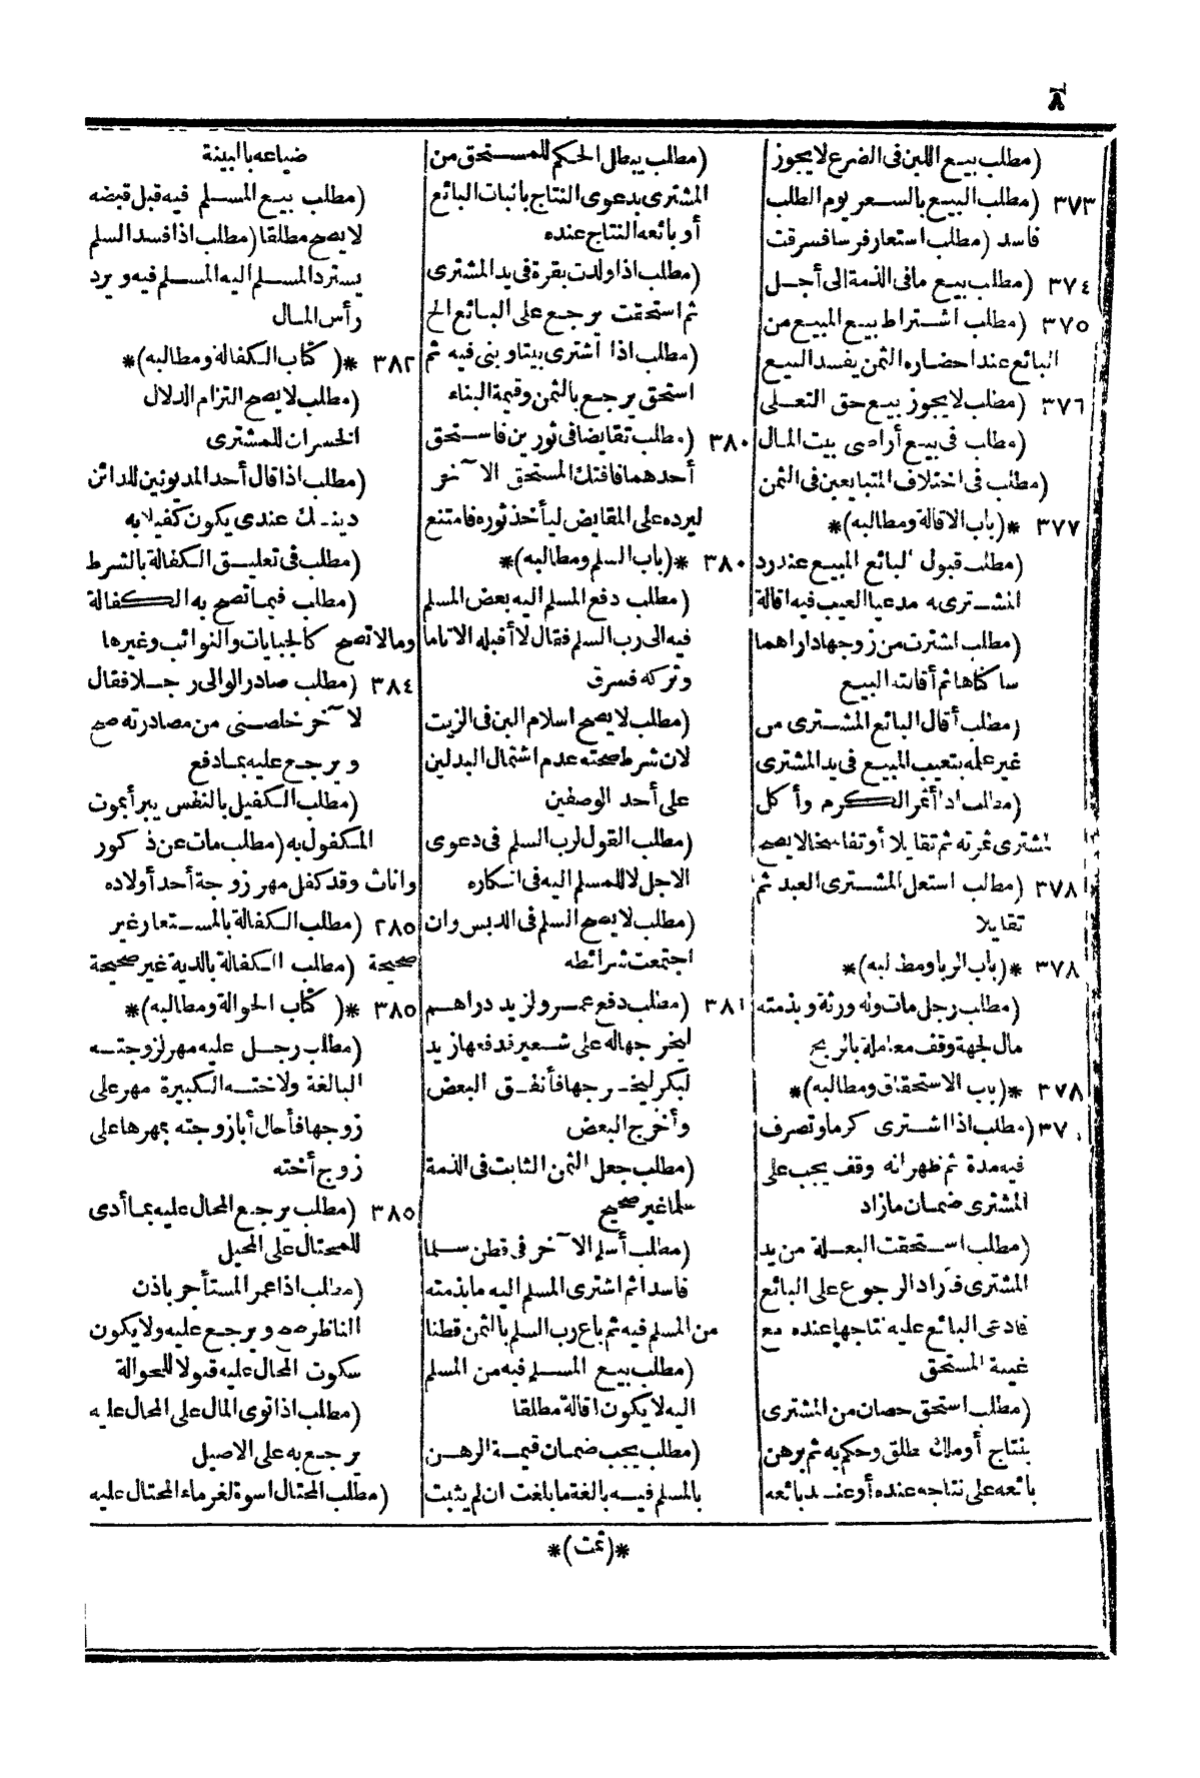 ٨
(مطلب بيع اللبن فى الضرع لا يجوز
٣٧٣ (مطلب البيع بالسعر يوم الطلب
فاسد (مطلب استعار فرسا فسرقت
٣٧٤ (مطلب بيع ما فى الذمة الى أجل
٣٧٥ (مطلب اشتراط بيع المبيع من
البائع عند احضاره الثمن يفسد البيع
٣٧٦ (مطلب لا يجوز بيع حق التعلى
(مطلب فى بيع أراضى بيت المال
(مطلب فى اختلاف المتبايعين فى الثمن
٣٧٧ *(باب الاقالة ومطالبه)*
(مطلب قبول البائع المبيع عند رد
المشترى له مدعيا العيب فيه اقالة
(مطلب اشترت من زوجها دارا هما
ساكناها ثم أقالته البيع
(مطلب أقال البائع المشترى من
غير علمه بتعيب المبيع فى يد المشترى
(مطلب اذا أثمر الكرم وأكل
المشترى ثمرته ثم تقايلا أو تفاسخا لا يصح
٣٧٨ (مطلب استعل المشترى العبد ثم
تقايلا
٣٧٨ *(باب الربا ومطالبه)*
(مطلب رجل مات وله ورثة وبذمته
مال لجهة وقف معاملة بالربح
٣٧٨ *(باب الاستحقاق ومطالبه)*
٣٧٠ (مطلب اذا اشترى كرما وتصرف
فيه مدة ثم ظهر انه وقف يجب على
المشترى ضمان ما زاد
(مطلب استحقت البغلة من يد
المشترى فأراد الرجوع على البائع
فادعى البائع عليه نتاجها عنده مع
غيبة المستحق
(مطلب استحق حصان من المشترى
بنتاج أو ملك طلق وحكم به ثم برهن
بائعه على نتاجه عنده أو عند بائعه
(مطلب يبطل الحكم للمستحق من
المشترى بدعوى النتاج باثبات البائع
أو بائعه النتاج عنده
(مطلب اذا ولدت بقرة فى يد المشترى
ثم استحقت يرجع على البائع الخ
(مطلب اذا اشترى بيتا وبنى فيه ثم
استحق يرجع بالثمن وقيمة البناء
٣٨٠ (مطلب تقايضا فى ثورين فاستحق
أحدهما فافتك المستحق الآخر
ليرده على المقايض ليأخذ ثوره فامتنع
٣٨٠ *(باب السلم ومطالبه)*
(مطلب دفع المسلم اليه بعض المسلم
فيه الى رب السلم فقال لا أقبله الا تاما
وتركه فسرق
(مطلب لا يصح اسلام البن فى الزيت
لان شرط صحته عدم اشتمال البدلين
على أحد الوصفين
(مطلب القول لرب السلم فى دعوى
الاجل لا للمسلم اليه فى انكاره
(مطلب لا يصح السلم فى الدبس وان
اجتمعت شرائطه
٣٨١ (مطلب دفع عمرو لزيد دراهم
ليخرجها له على شعير فدفعها زيد
لبكر ليخرجها فأنفق البعض
وأخرج البعض
(مطلب جعل الثمن الثابت فى الذمة
سلما غير صحيح
(مطلب أسلم الآخر فى قطن سلما
فاسدا ثم اشترى المسلم اليه ما بذمته
من المسلم فيه ثم باع رب السلم بالثمن قطنا
(مطلب بيع المسلم فيه من المسلم
اليه لا يكون اقالة مطلقا
(مطلب يجب ضمان قيمة الرهن
بالمسلم فيه بالغة ما بلغت ان لم يثبت
ضياعه بالبينة
(مطلب بيع المسلم فيه قبل قبضه
لا يصح مطلقا (مطلب اذا فسد السلم
يسترد المسلم اليه المسلم فيه ويرد
رأس المال
٣٨٢ *(كتاب الكفالة ومطالبه)*
(مطلب لا يصح التزام الدلال
الخسران للمشترى
(مطلب اذا قال أحد المديونين للدائن
دينك عندى يكون كفيلا به
(مطلب فى تعليق الكفالة بالشرط
(مطلب فيما تصح به الكفالة
وما لا تصح كالجبايات والنوائب وغيرها
٣٨٤ (مطلب صادر الوالى رجلا فقال
لآخر خلصنى من مصادرته صح
ويرجع عليه بما دفع
(مطلب الكفيل بالنفس يبرأ بموت
المكفول به (مطلب مات عن ذكور
واناث وقد كفل مهر زوجة أحد أولاده
٢٨٥ (مطلب الكفالة بالمستعار غير
صحيحة (مطلب الكفالة بالدية غير صحيحة
٣٨٥ *(كتاب الحوالة ومطالبه)*
(مطلب رجل عليه مهر لزوجته
البالغة ولاخته الكبيرة مهر على
زوجها فأحال أبا زوجته بمهرها على
زوج أخته
٣٨٥ (مطلب يرجع المحال عليه بما أدى
للمحتال على المحيل
(مطلب اذا عمر المستأجر باذن
الناظر صح ويرجع عليه ولا يكون
سكوت المحال عليه قبولا للحوالة
(مطلب اذا توى المال على المحال عليه
يرجع به على الاصيل
(مطلب المحتال اسوة لغرماء المحتال عليه
*(تمت)*